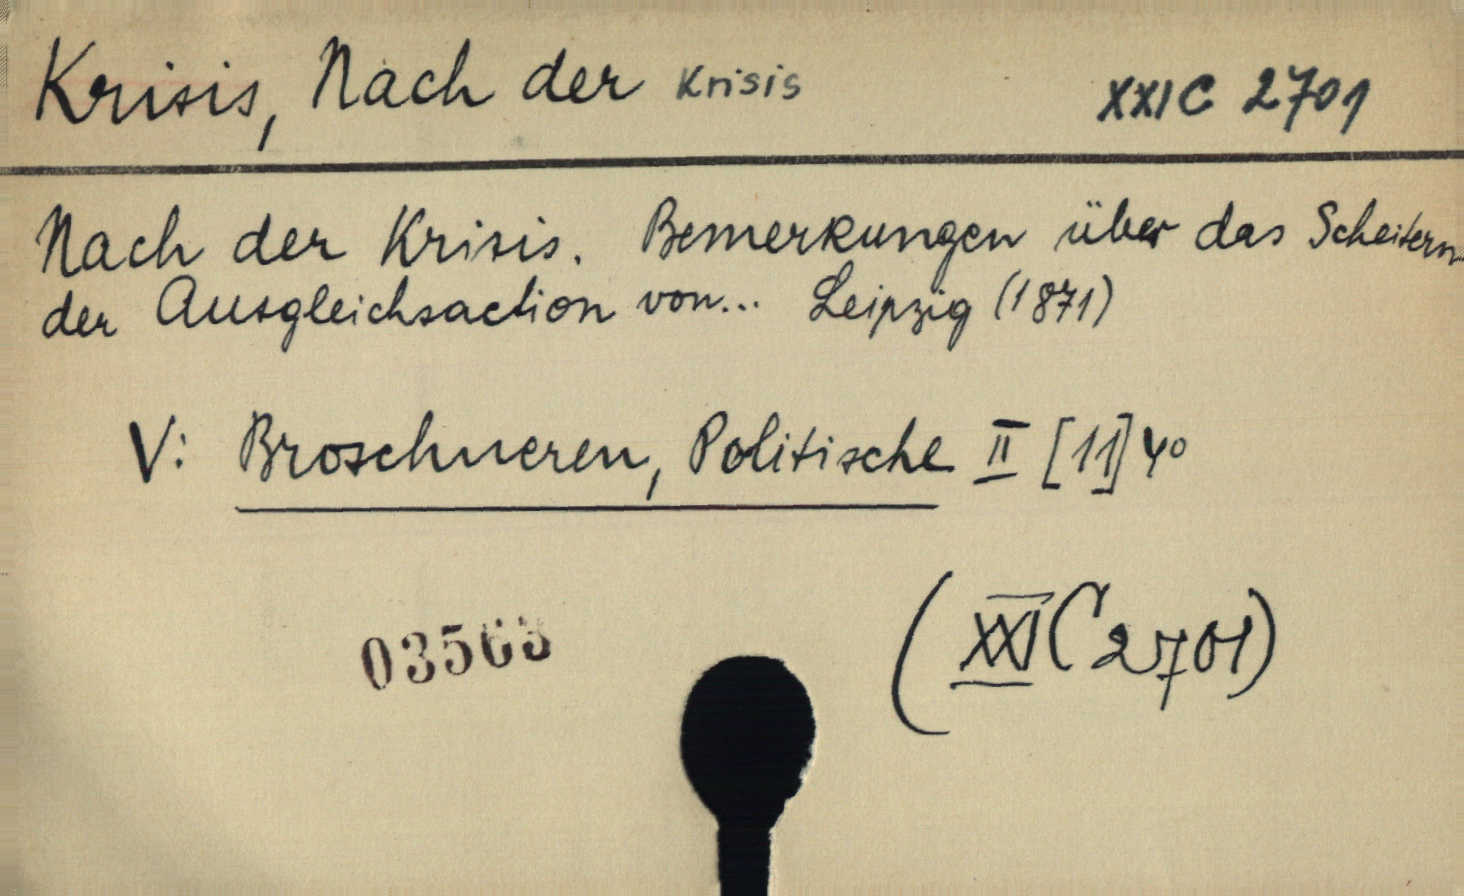 Krisis, Nach der Krisis XXI C 2701
Nach der Krisis. Bemerkungen über das Scheitern
der Ausgleichsaction von... Leipzig (1871)
V: Broschueren, Politische II [11] 4º
03565
(XXI C 2701)